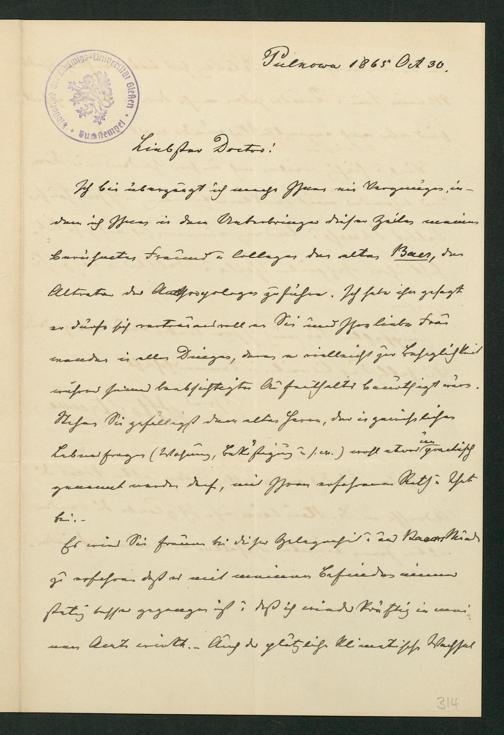 Pulkowa 1865 Oct 30.
Bibliothek der Ludwigs-Universität Gießen
Buchstempel
Liebster Doctor!
Ich bin überzeugt ich mache Ihnen ein Vergnügen, in-
dem ich Ihnen in dem Ueberbringer dieser Zeilen meinen
berühmten Freund u Collegen den alten Baer, den
Altvater der Anthropologen zuführe. Ich habe ihm gesagt
er dürfe sich vertrauensvoll an Sie und Ihre liebe Frau
wenden in allen Dingen, deren er vielleicht zur Behaglichkeit
während seines beabsichtigten Aufenthaltes benöthigt wäre.
Stehen Sie gefälligst dem alten Herrn, der in gewöhnlichen
Lebensfragen (Wohnung, Beköstigung u. s. w.) wohl etwas unpractisch
genannt werden darf, mit Ihrem erfahrenen Rath u That
bei.-
Es wird Sie freuen bei dieser Gelegenheit u aus Baers Munde
zu erfahren daß es mit meinem Befinden immer
stetig besser gegangen ist u daß ich wieder kräftig in mei-
nem Amte wirke.- Auch der plötzliche klimatische Wechsel
314